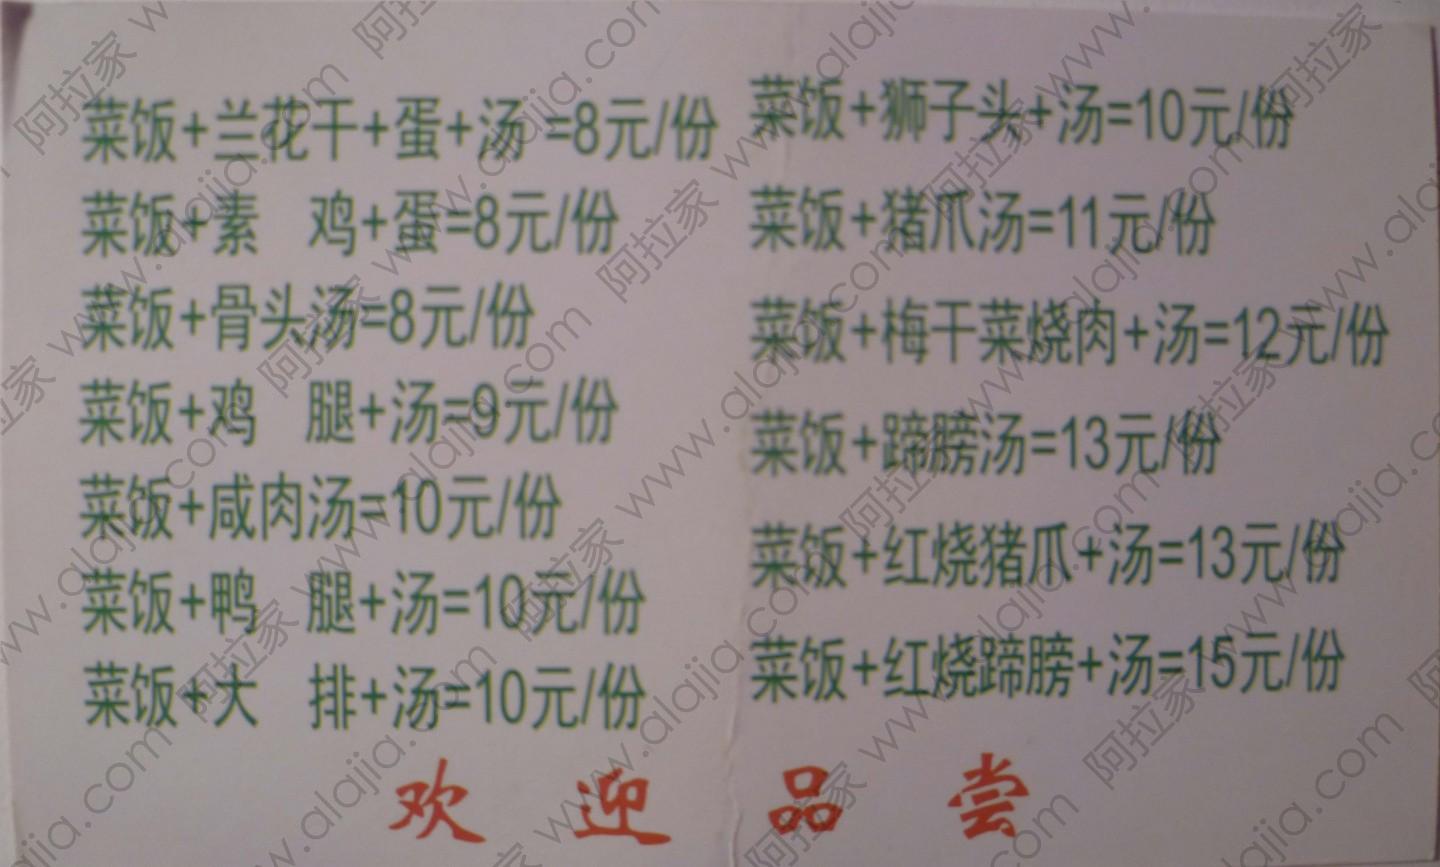 菜饭+兰花干+蛋+汤=8元/份
菜饭+素 鸡+蛋=8元/份
菜饭+骨头汤=8元/份
菜饭+鸡 腿+汤=9元/份
菜饭+咸肉汤=10元/份
菜饭+鸭 腿+汤=10元/份
菜饭+大 排+汤=10元/份
菜饭+狮子头+汤=10元/份
菜饭+猪爪汤=11元/份
菜饭+梅干菜烧肉+汤=12元/份
菜饭+蹄膀汤=13元/份
菜饭+红烧猪爪+汤=13元/份
菜饭+红烧蹄膀+汤=15元/份
欢 迎 品 尝
阿拉家 www.alajia.com